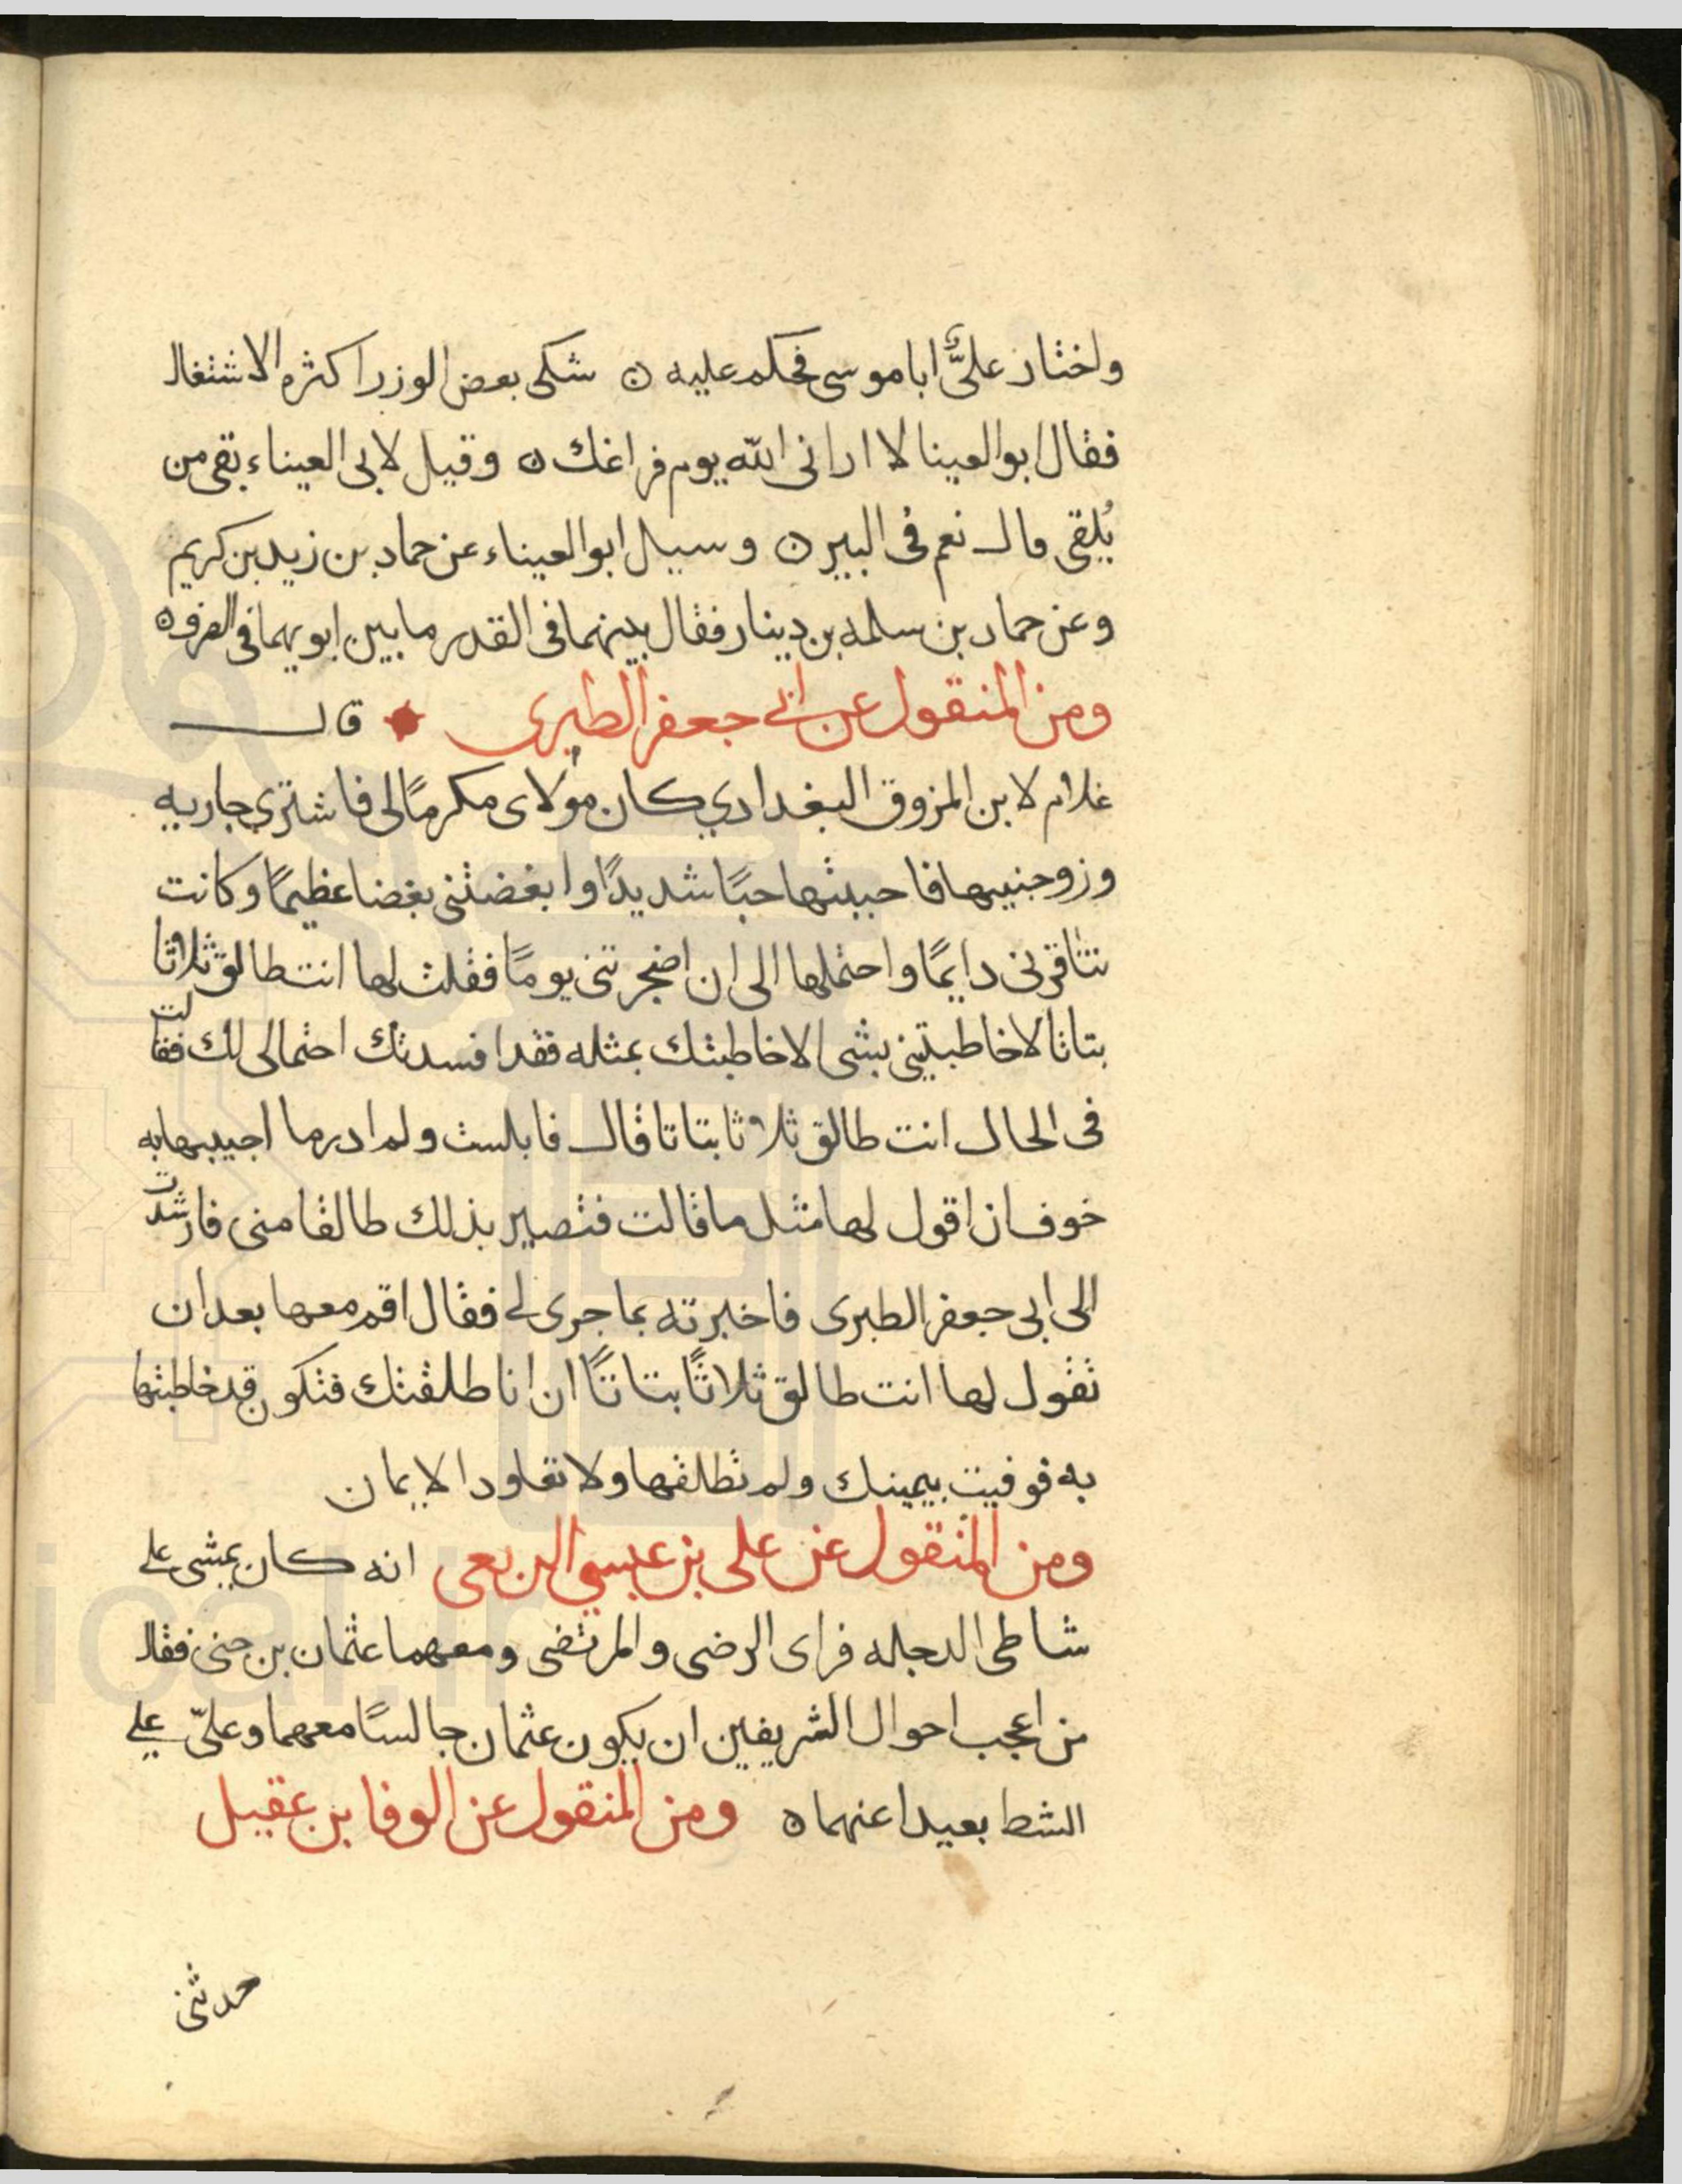 واختار علیٌّ ابا موسی فحکم علیه ن شکی بعض الوزرا کثره الاشتغال
فقال ابو العینا لا ارانی الله یوم فراغك ن وقیل لابی العیناء بقی من
یُلقی قال نعم فی البیر ن وسیل ابو العیناء عن حماد بن زید بن کریم
وعن حماد بن سلمه بن دینار فقال بینهما فی القدر ما بین ابویهما فی الصرف ه
ومن المنقول عن ابی جعفر الطبری قال
غلام لابن المزوق البغدادي کان مولای مکرمًا لی فاشتری جاریه
وزوجنیها فاحببتها حبًا شدیدًا وابغضتنی بغضا عظیمًا وکانت
تناقرنی دایمًا واحتملها الی ان اضجرتنی یومًا فقلت لها انت طالق ثلاثا
بتاتا لا خاطبتینی بشی الا خاطبتك بمثله فقد افسدتك احتمالی لك فقالت
فی الحال انت طالق ثلاثا بتاتا قال فابلست ولم ادر ما اجیبها به
خوف ان اقول لها مثل ما قالت فتصیر بذلك طالقا منی فارشدت
الی ابی جعفر الطبری فاخبرته بما جری لی فقال اقم معها بعد ان
تقول لها انت طالق ثلاثًا بتاتًا ان انا طلقتك فتکون قد خاطبتها
به فوفیت بیمینك ولم تطلقها ولا تعاود الایمان
ومن المنقول عن علی بن عیسی الربعی انه کان یمشی علی
شاطی الدجله فرای الرضی والمرتضی ومعهما عثمان بن جنی فقال
من اعجب احوال الشریفین ان یکون عثمان جالسًا معهما وعلیّ علی
الشط بعیدا عنهما ه ومن المنقول عن الوفا بن عقیل
حدثنی